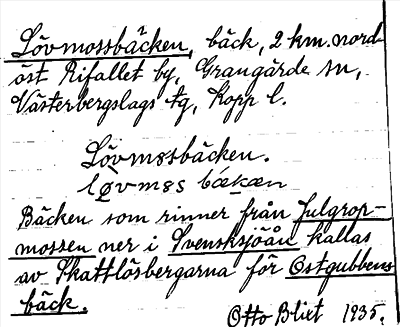 Lövmossbäcken, bäck, 2 km. nord-
öst Rifallet by, Grangärde sn,
Västerbergslags tg, Kopp l.
Lövmossbäcken.
løvmɷs bækæn
Bäcken som rinner från Julgrop-
mossen ner i Svensksjöån kallas
av Skattlösbergarna för Ostgubbens
bäck.
Otto Blixt 1935.